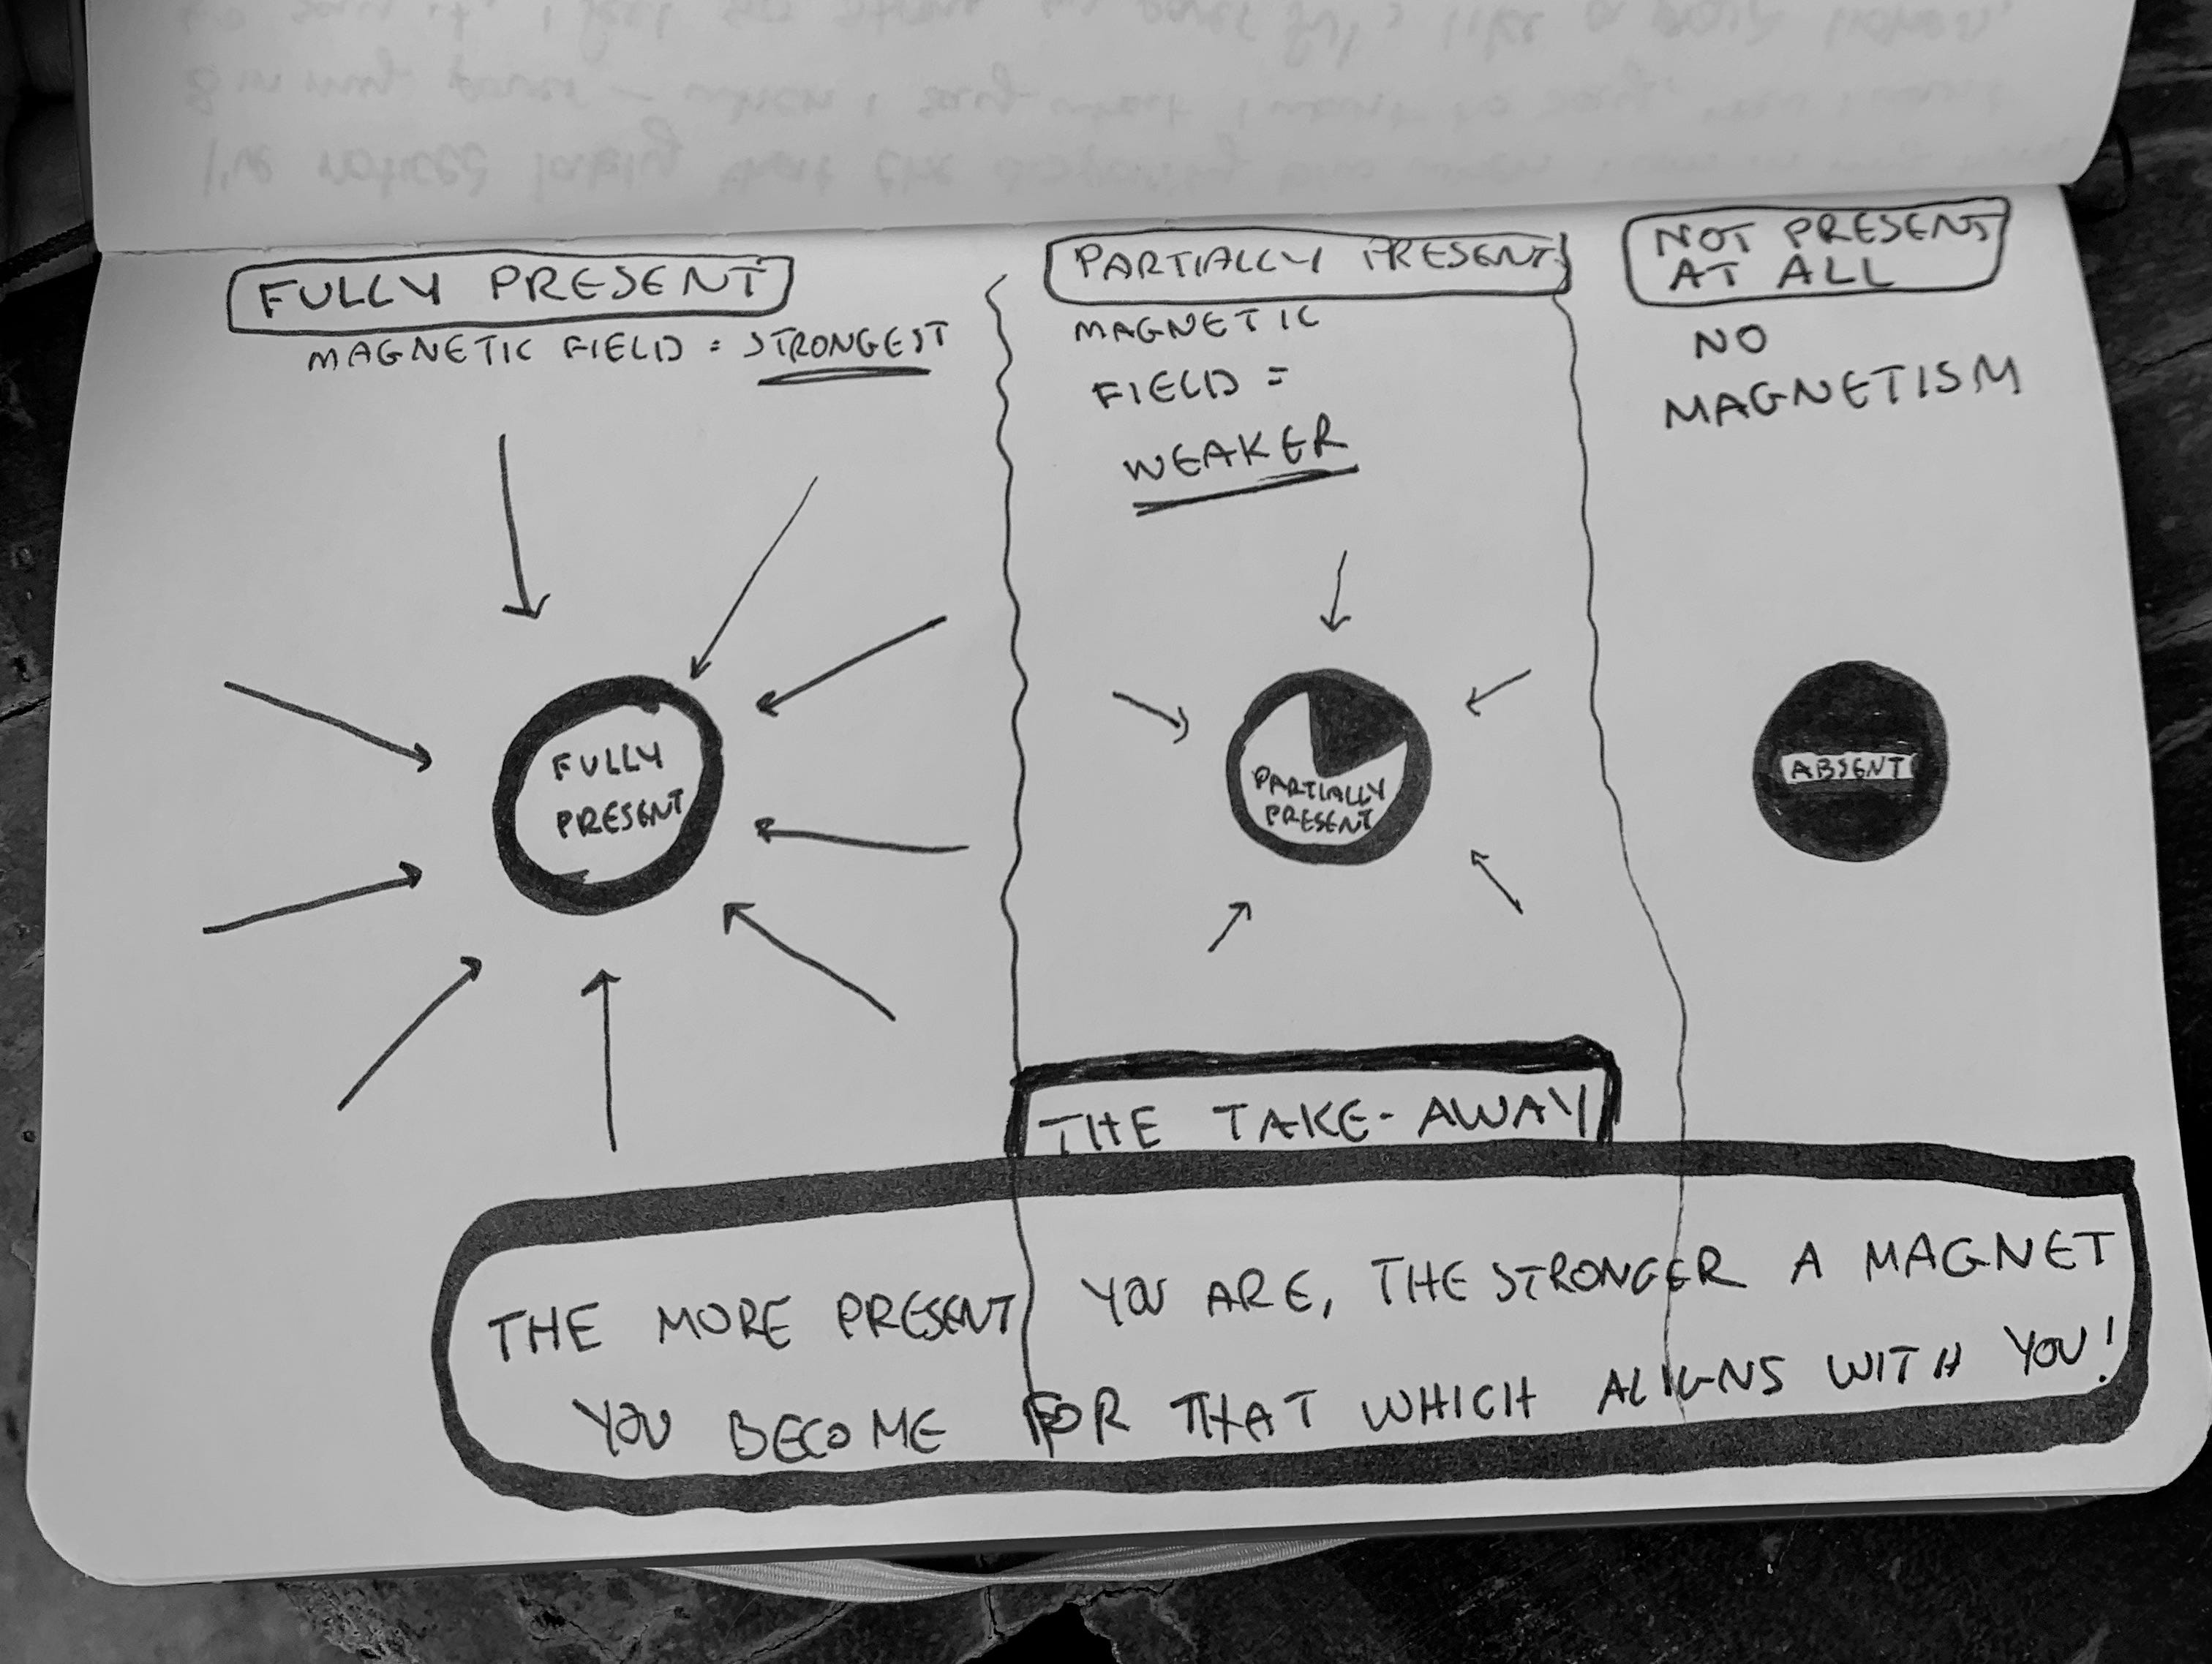 FULLY PRESENT
MAGNETIC FIELD = STRONGEST
FULLY
PRESENT
PARTIALLY PRESENT
MAGNETIC
FIELD =
WEAKER
PARTIALLY
PRESENT
NOT PRESENT
AT ALL
NO
MAGNETISM
ABSENT
THE TAKE-AWAY
THE MORE PRESENT YOU ARE, THE STRONGER A MAGNET
YOU BECOME FOR THAT WHICH ALIGNS WITH YOU!